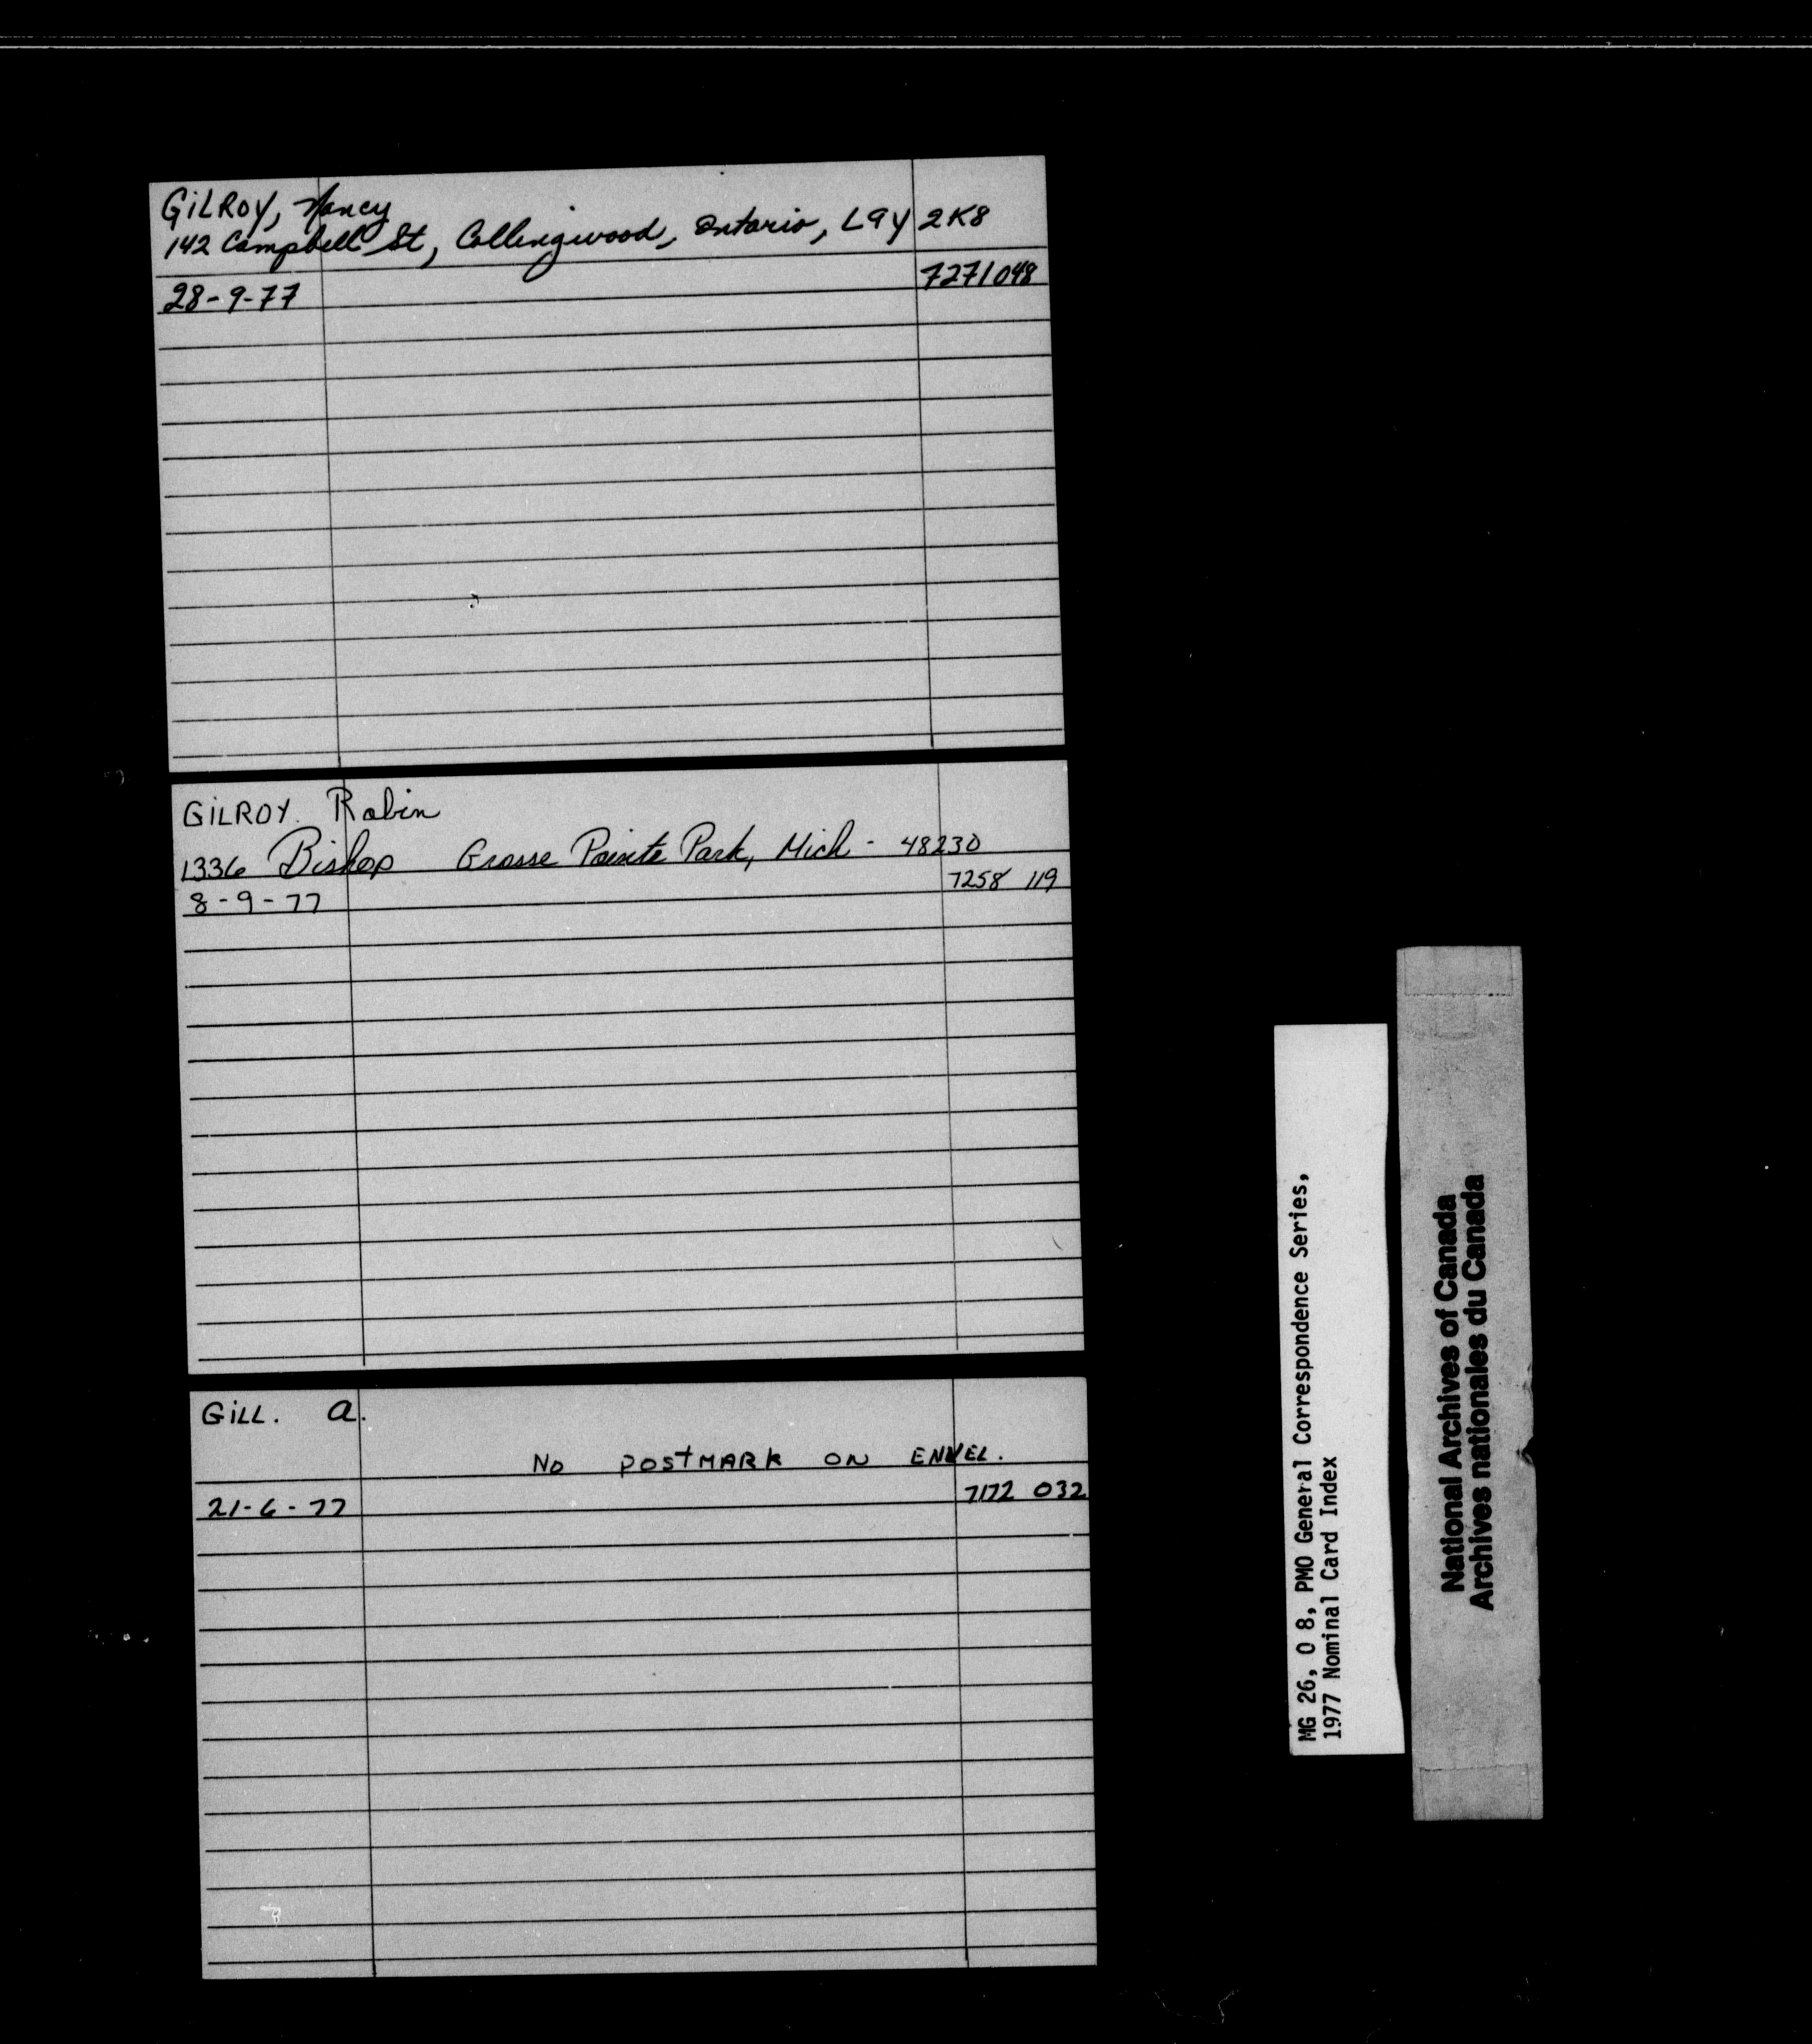 GILROY, Nancy
142 Campbell St, Collingwood, Ontario, L9Y 2K8
7271048
28-9-77
GILROY. Robin
1336 Bishop Grosse Pointe Park, Mich - 48230
7258 119
8-9-77
GILL. a.
No POSTMARK ON ENVEL.
7172 032
21-6-77
MG 26, O 8, PMO General Correspondence Series,
1977 Nominal Card Index
National Archives of Canada
Archives nationales du Canada